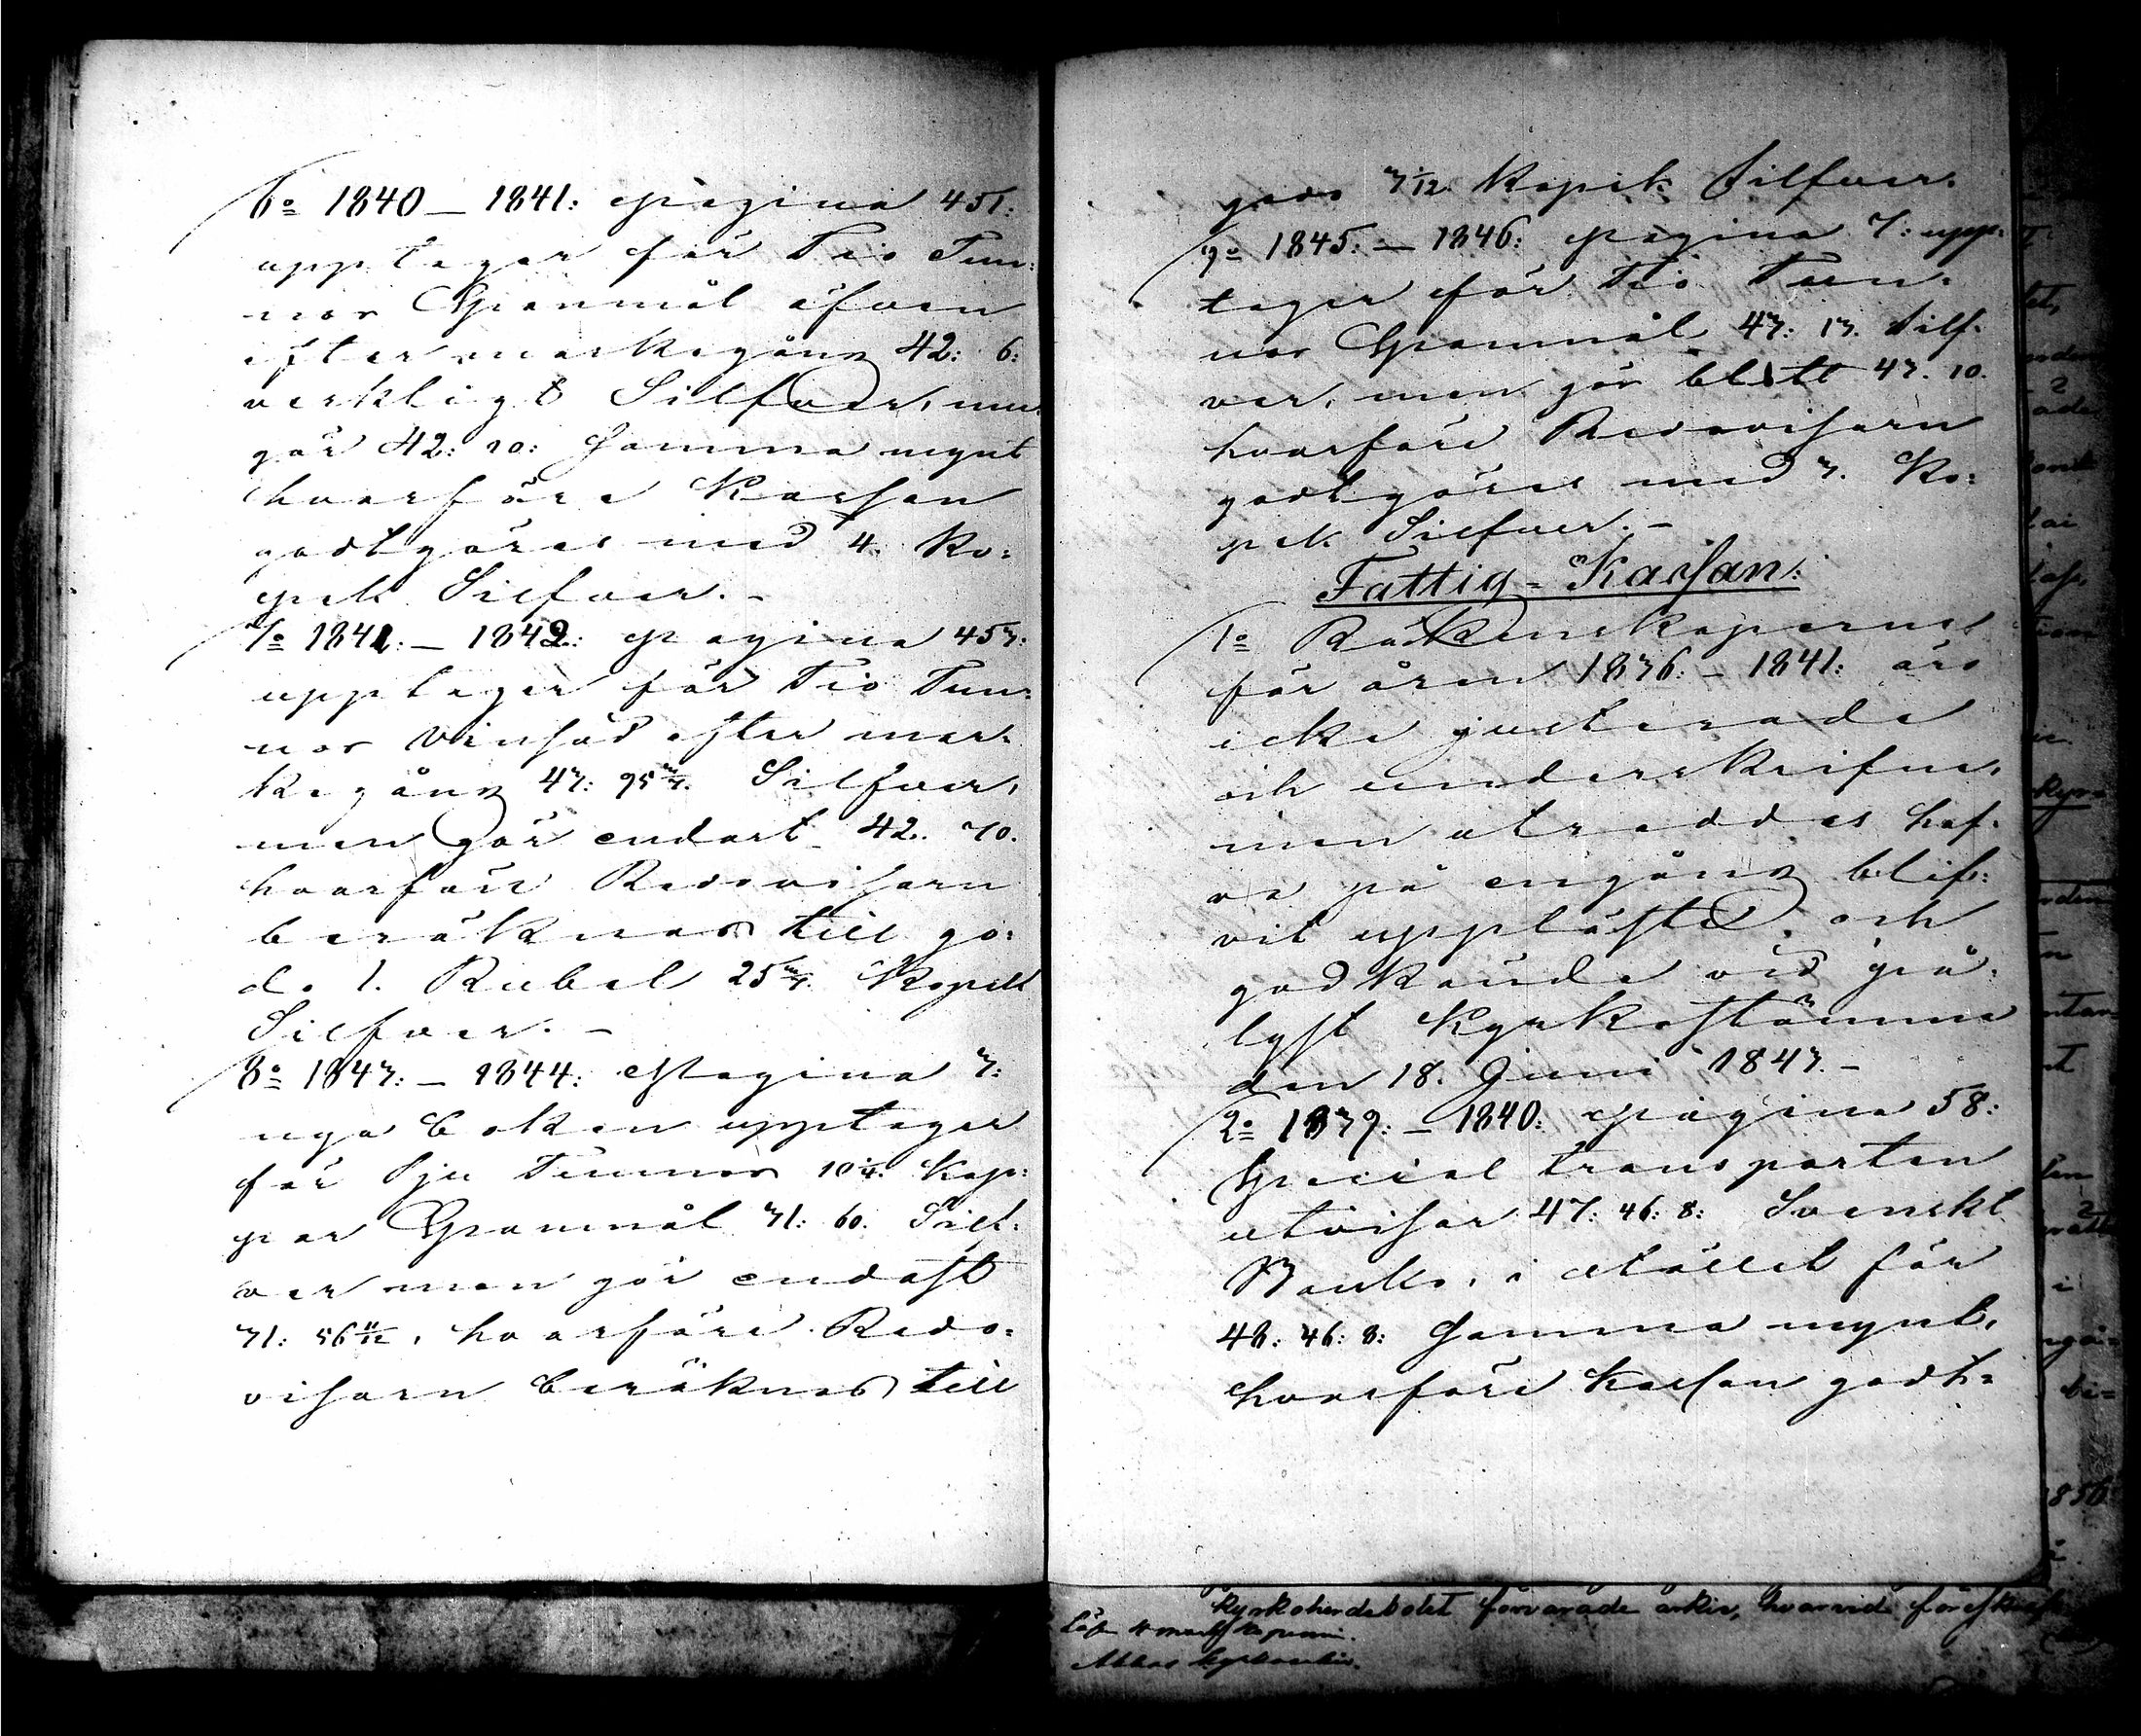 6º 1840 – 1841: pagina 451:
upptager för Tio Tun:
nor Spanmål äfven
efter markegång 42: 6:
verkligt Silfver, men
gör 42: 10: Samma mynt
hvarföre Kassan
godtgöres med 4. Ko:
pek Silfver. –
7º 1841: – 1842: pagina 453:
upptager för Tio Tun:
nor Vinsäd efter mar:
kegång 43: 95 3/7. Silfver,
men gör endast 42. 70.
hvarföre Redovisarn
beräknas till go:
do 1. Rubel 25 3/7. Kopek
Silfver. –
8º 1843: – 1844: Pagina 3:
nya boken upptager
för Sju Tunnor 10 1/4. Kap:
par Spanmål 31: 60. Silf:
ver men gör endast
31: 56 11/12, hvarföre Redo:
visarn beräknas till
godo 3 1/12. Kopek Silfver.
9º 1845: – 1846: pagina 7: upp:
tager för Tio Tun:
nor Spanmål 43: 13. Silf:
ver, men gör blott 43. 10.
hvarföre Redovisarn
godtgöres med 3. Ko:
pek Silfver. –
Fattig-Kassan:
1º Räkenskaperne
för åren 1836. – 1841: äro
icke justerade
och underskrifne,
men utreddes haf:
va på engång blif:
vit uppläste och
godkände vid på:
lyst Kyrkostämma
den 18. Juni 1843. –
2º 1839: – 1840: pagina 58:
Special transporten
utvisar 47: 46: 8: Svenskt
Banko, i stället för
48: 46: 8: Samma mynt,
hvarföre Kassan godt=
kyrkoherdebolet förvarade arkiv, hvarvid